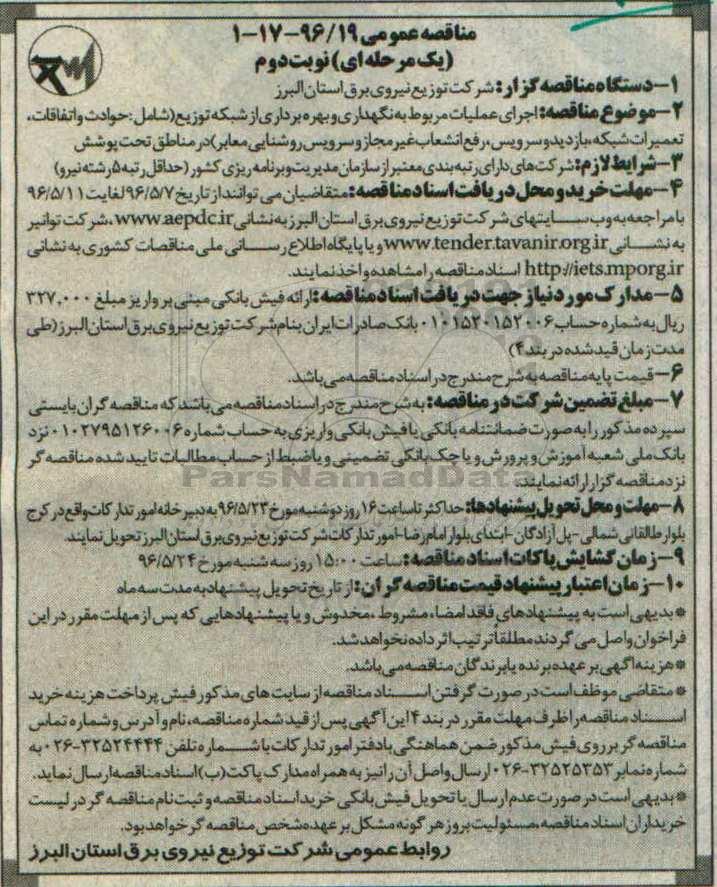 مناقصه عمومی ۹۶/۱۹-۱۷-۱
(یک مرحله ای) نوبت دوم
۱- دستگاه مناقصه گزار: شرکت توزیع نیروی برق استان البرز
۲- موضوع مناقصه: اجرای عملیات مربوط به نگهداری و بهره برداری از شبکه توزیع (شامل: حوادث و اتفاقات،
تعمیرات شبکه، بازدید و سرویس، رفع انشعاب غیر مجاز و سرویس روشنایی معابر) در مناطق تحت پوشش
۳- شرایط لازم: شرکت های دارای رتبه بندی معتبر از سازمان مدیریت و برنامه ریزی کشور (حداقل رتبه ۵ رشته نیرو)
۴- مهلت خرید و محل دریافت اسناد مناقصه: متقاضیان می توانند از تاریخ ۹۶/۵/۷ لغایت ۹۶/۵/۱۱
با مراجعه به وب سایتهای شرکت توزیع نیروی برق استان البرز به نشانی www.aepdc.ir، شرکت توانیر
به نشانی www.tender.tavanir.org.ir و یا پایگاه اطلاع رسانی ملی مناقصات کشوری به نشانی
http://iets.mporg.ir اسناد مناقصه را مشاهده و اخذ نمایند.
۵- مدارک مورد نیاز جهت دریافت اسناد مناقصه: ارائه فیش بانکی مبنی بر واریز مبلغ ۳۲۷,۰۰۰
ریال به شماره حساب ۰۱۰۱۵۲۰۱۵۲۰۰۶ بانک صادرات ایران بنام شرکت توزیع نیروی برق استان البرز (طی
مدت زمان قید شده در بند ۴)
۶- قیمت پایه مناقصه به شرح مندرج در اسناد مناقصه می باشد.
۷- مبلغ تضمین شرکت در مناقصه: به شرح مندرج در اسناد مناقصه می باشد که مناقصه گران بایستی
سپرده مذکور را به صورت ضمانتنامه بانکی یا فیش بانکی واریزی به حساب شماره ۰۱۰۲۷۹۵۱۲۶۰۰۶ نزد
بانک ملی شعبه آموزش و پرورش و یا چک بانکی تضمینی و یا ضبط از حساب مطالبات تایید شده مناقصه گر
نزد مناقصه گزار ارائه نمایند.
ParsNamadData
۸- مهلت و محل تحویل پیشنهادها: حداکثر تا ساعت ۱۶ روز دوشنبه مورخ ۹۶/۵/۲۳ به دبیرخانه امور تدارکات واقع در کرج
بلوار طالقانی شمالی - پل آزادگان - ابتدای بلوار امام رضا - امور تدارکات شرکت توزیع نیروی برق استان البرز تحویل نمایند.
۹- زمان گشایش پاکات اسناد مناقصه: ساعت ۱۵:۰۰ روز سه شنبه مورخ ۹۶/۵/۲۴
۱۰- زمان اعتبار پیشنهاد قیمت مناقصه گران: از تاریخ تحویل پیشنهاد به مدت سه ماه
* بدیهی است به پیشنهادهای فاقد امضاء، مشروط، مخدوش و یا پیشنهادهایی که پس از مهلت مقرر در این
فراخوان واصل می گردند مطلقاً ترتیب اثر داده نخواهد شد.
* هزینه آگهی بر عهده برنده یا برندگان مناقصه می باشد.
* متقاضی موظف است در صورت گرفتن اسناد مناقصه از سایت های مذکور فیش پرداخت هزینه خرید
اسناد مناقصه را ظرف مهلت مقرر در بند ۴ این آگهی پس از قید شماره مناقصه، نام و آدرس و شماره تماس
مناقصه گر بر روی فیش مذکور ضمن هماهنگی با دفتر امور تدارکات با شماره تلفن ۳۲۵۲۴۴۴۴-۰۲۶ به
شماره نمابر ۳۲۵۲۵۳۵۳-۰۲۶ ارسال و اصل آن را نیز به همراه مدارک پاکت (ب) اسناد مناقصه ارسال نماید.
* بدیهی است در صورت عدم ارسال یا تحویل فیش بانکی خرید اسناد مناقصه و ثبت نام مناقصه گر در لیست
خریداران اسناد مناقصه، مسئولیت بروز هر گونه مشکل بر عهده شخص مناقصه گر خواهد بود.
روابط عمومی شرکت توزیع نیروی برق استان البرز